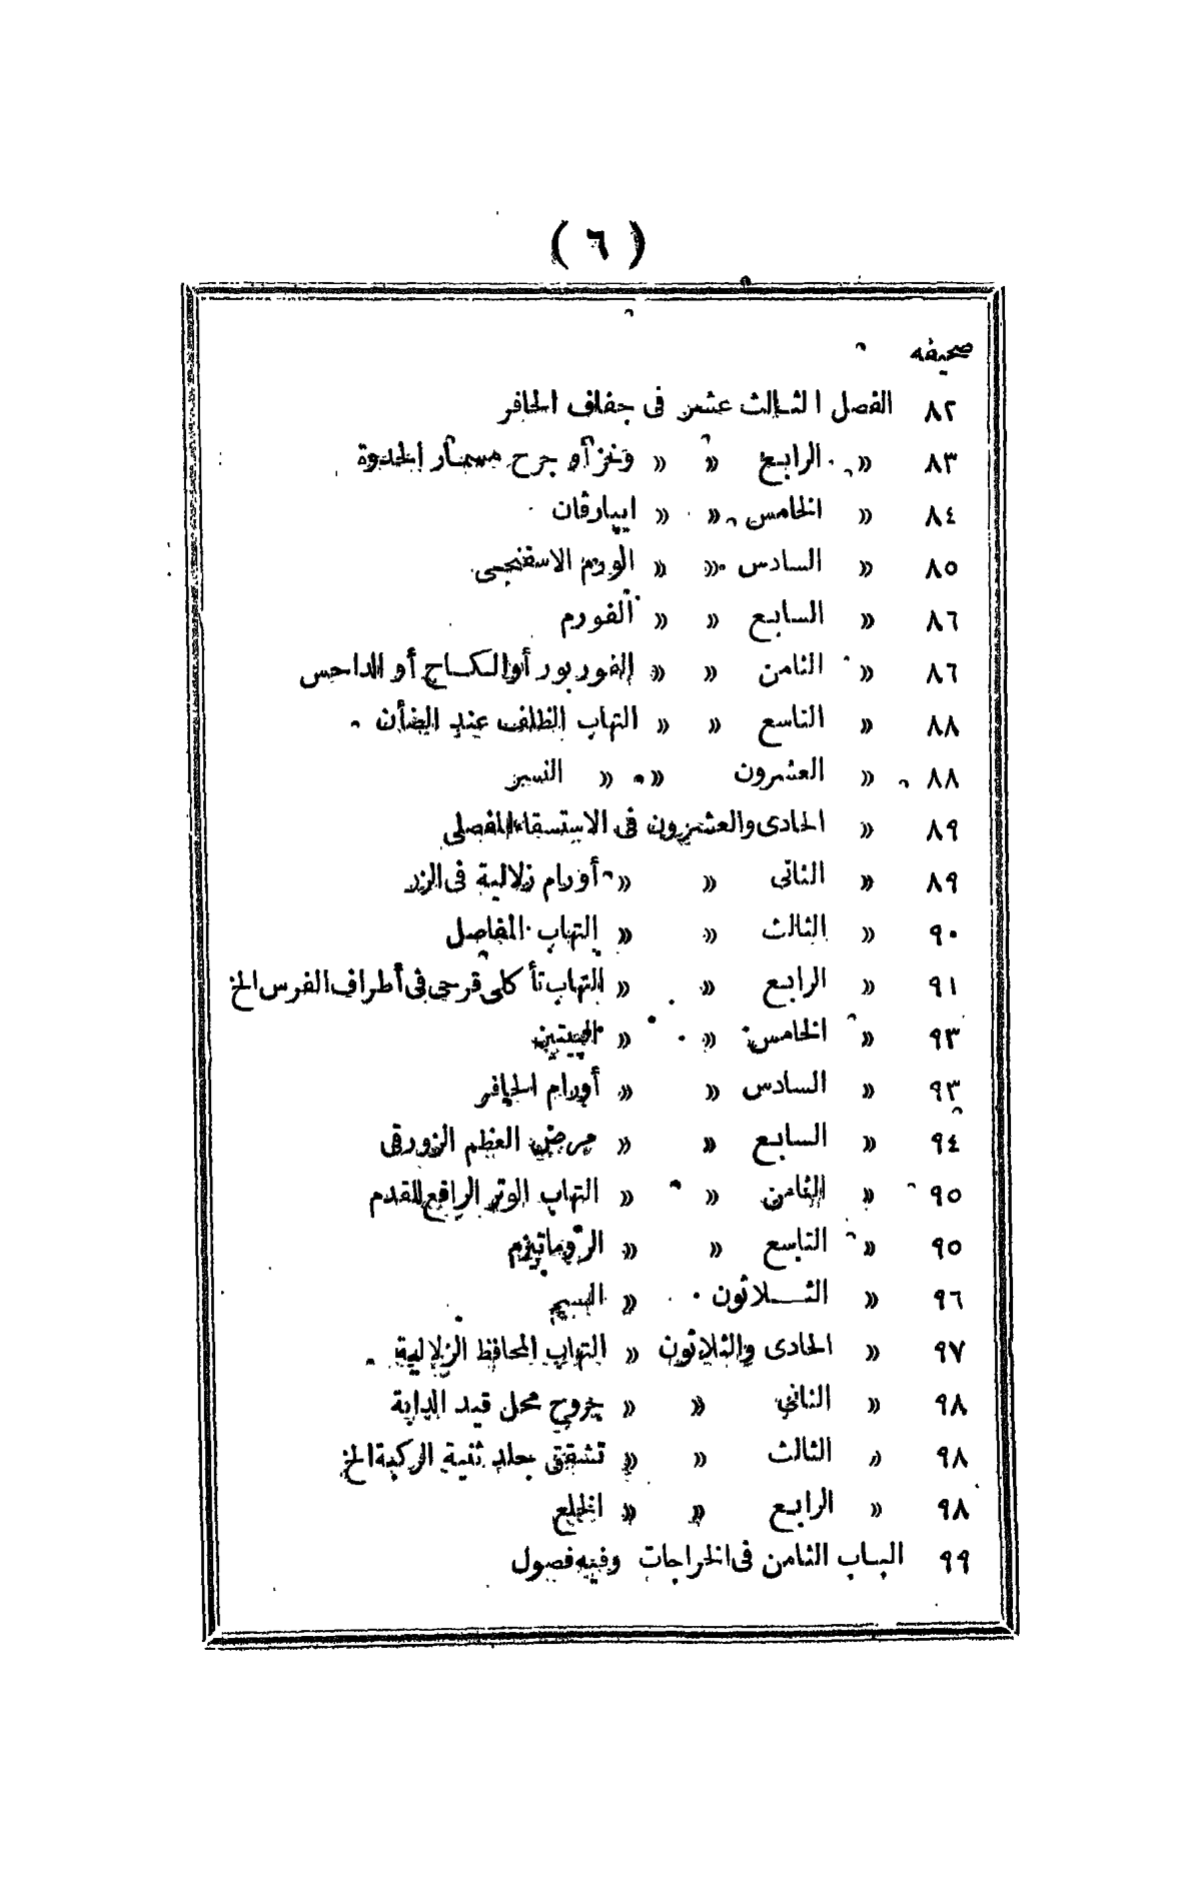 ( ٦ )
صحيفه
٨٢ الفصل الثالث عشر فى جفاف الحافر
٨٣ « الرابع « « وخز أو جرح مسمار الحدوة
٨٤ « الخامس « « ايپارڤان
٨٥ « السادس « « الورم الاسفنجى
٨٦ « السابع « « الفورم
٨٦ « الثامن « « الفوربور أو الكساح أو الداحس
٨٨ « التاسع « « التهاب الظلف عند الضأن
٨٨ « العشرون « « النسبز
٨٩ « الحادى والعشرون فى الاستسقاء المفصلى
٨٩ « الثانى « « أورام زلالية فى الزر
٩٠ « الثالث « « التهاب المفاصل
٩١ « الرابع « « التهاب تأكلى قرحى فى أطراف الفرس الخ
٩٣ « الخامس « «
٩٣ « السادس « « أورام الحافر
٩٤ « السابع « « مرض العظم الزورقى
٩٥ « الثامن « « التهاب الوتر الرافع للقدم
٩٥ « التاسع « « الروماتيزم
٩٦ « الثلاثون «
٩٧ « الحادى والثلاثون « التهاب المحافظ الزلالية
٩٨ « الثانى « « جروح محل قيد الدابة
٩٨ « الثالث « « تشقق جلد ثنية الركبة الخ
٩٨ « الرابع « « الخلع
٩٩ الباب الثامن فى الخراجات وفيه فصول